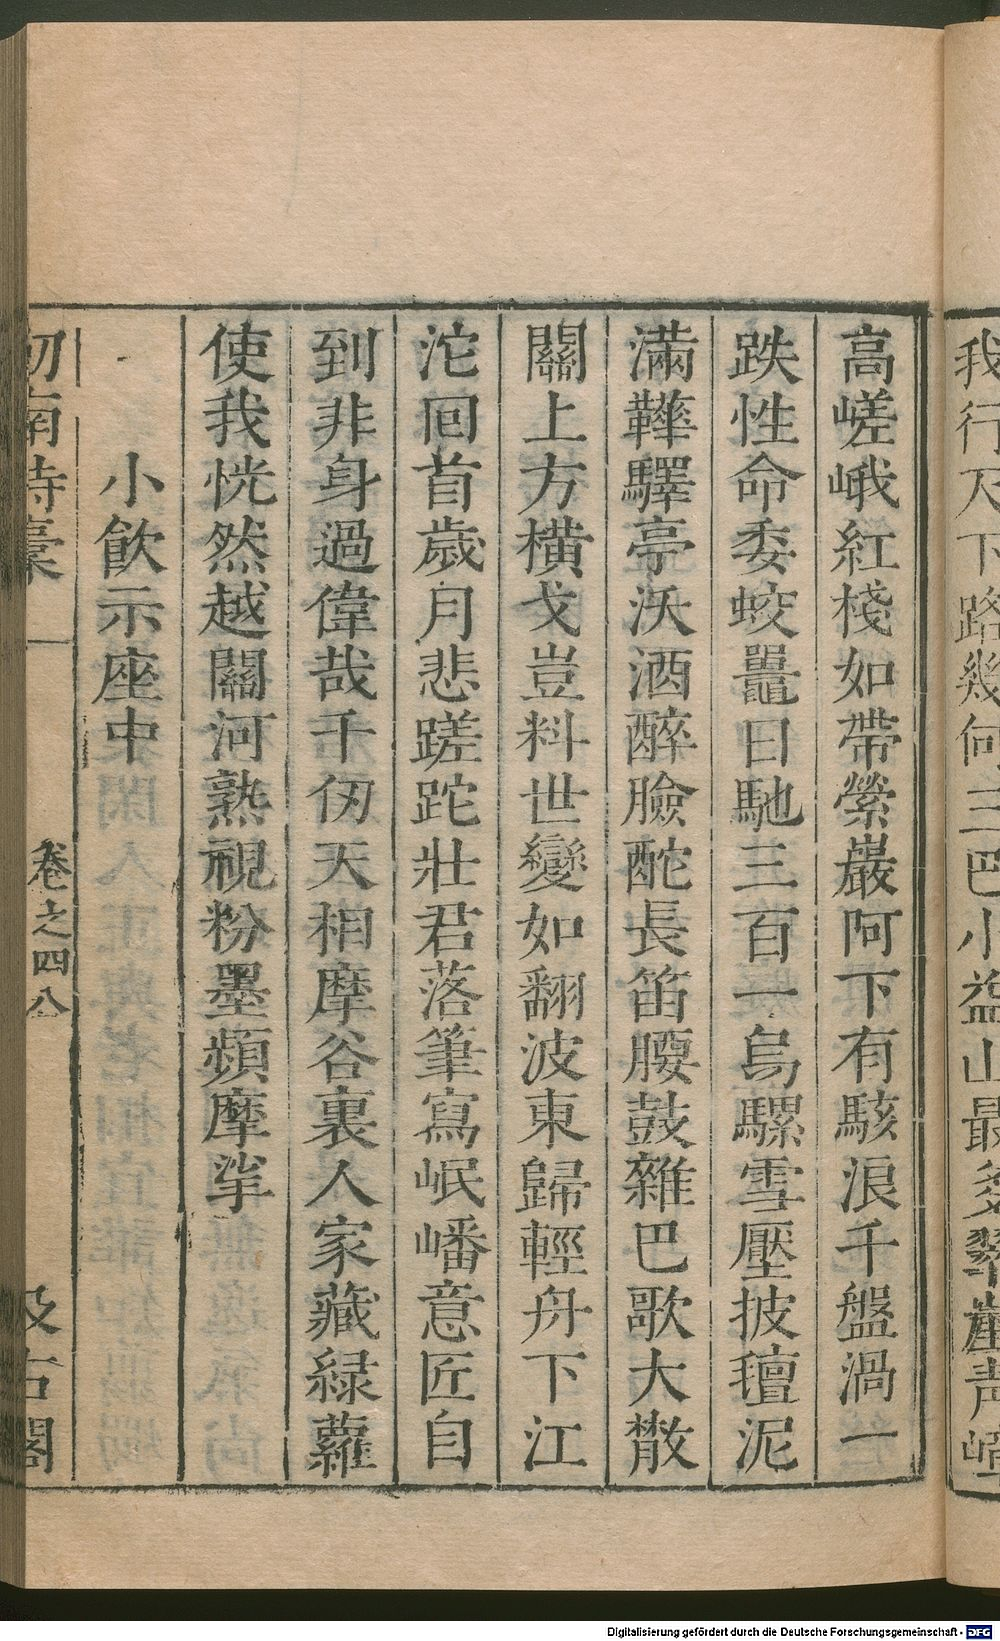 我行天下路幾何三巴小益山最多翠崖青嶂
高嵯峨紅棧如帶縈巖阿下有駭浪千盤渦一
跌性命委蛟鼉日馳三百一烏騾雪壓披氊泥
滿鞾驛亭沃酒醉臉酡長笛腰鼓雜巴歌大散
關上方橫戈豈料世變如翻波東歸輕舟下江
沱囘首歲月悲蹉跎壯君落筆寫岷嶓意匠自
到非身過偉哉千仞天相摩谷裏人家藏緑蘿
使我恍然越關河熟視粉墨頻摩挲
小飲示座中
劍南詩稾
卷之四
八
汲古閣
Digitalisierung gefördert durch die Deutsche Forschungsgemeinschaft - DFG